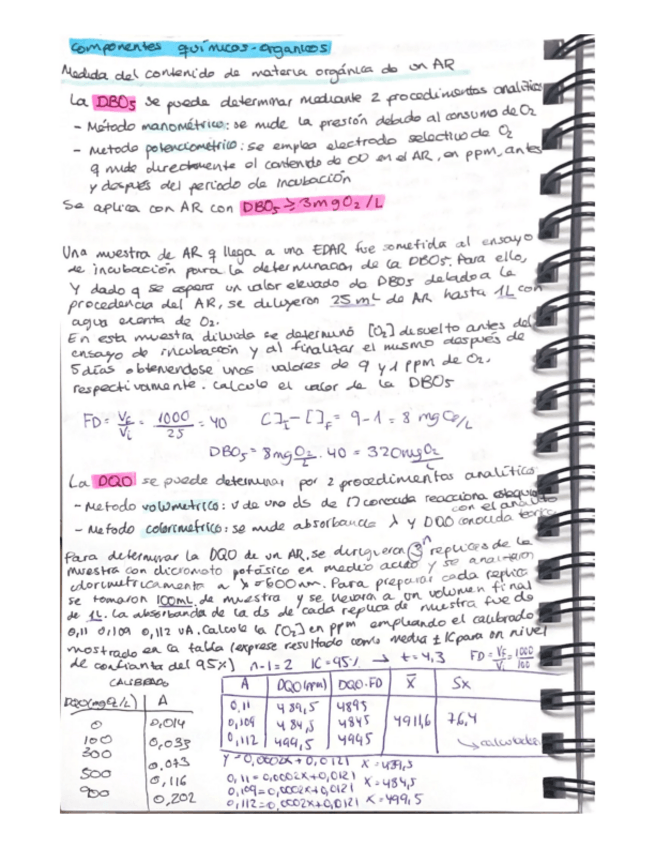 Componentes químicos-organicos
Medida del contenido de materia orgánica de un AR
La DBO5 se puede determinar mediante 2 procedimientos analitico
- Método manométrico: se mide la presión debido al consumo de O2
- Metodo potenciometrico: se emplea electrodo selectivo de O2
q mide directamente el contenido de OD en el AR, en ppm, antes
y después del periodo de incubación
Se aplica con AR con DBO5 ≥ 3mgO2/L
Una muestra de AR q llega a una EDAR fue sometida al ensayo
de incubación para la determinacion de la DBO5. Para ello,
Y dado q se espera un valor elevado de DBO5 debido a la
procedencia del AR, se diluyeron 25 mL de AR hasta 1L con
agua exenta de O2.
En esta muestra diluida se determinó [O2] disuelto antes del
ensayo de incubación y al finalizar el mismo después de
5 dias obteniendose unos valores de 9 y 1 ppm de O2,
respectivamente. Calcule el valor de la DBO5
FD = VF/Vi = 1000/25 = 40 [ ]I - [ ]F = 9-1 = 8 mg O2/L
DBO5 = 8mg O2/L · 40 = 320mgO2/L
La DQO se puede determinar por 2 procedimientos analitico
- Metodo volumetrico: V de una ds de [] conocida reacciona estequio
con el analito
- Metodo colorimetrico: se mide absorbancia λ y DQO conocida
Para determinar la DQO de un AR, se dirigieron 3 replicas de la n
muestra con dicromato potásico en medio acido y se analizaron
colorimetricamente a λ=600nm. Para preparar cada replica
se tomaron 100mL de muestra y se llevara a un volumen final
de 1L. La absorbancia de la ds de cada replica de muestra fue de
0,11 0,109 0,112 uA. Calcule la [O2] en ppm empleando el calibrado
mostrado en la tabla (exprese resultado como media ± IC para un nivel
de confianza del 95%) n-1=2 IC=95% → t=4,3 FD = VF/Vi = 1000/100
CALIBRADO
DQO(mgO2/L) A
0 0,014
100 0,033
300 0,073
500 0,116
900 0,202
A DQO(ppm) DQO·FD X̄ Sx
0,11 489,5 4895
0,109 484,5 4845 4911,6 76,4
0,112 499,5 4995
Y=0,0002x+0,0121 x=489,5
0,11=0,0002x+0,0121 x=484,5
0,109=0,0002x+0,0121
0,112=0,0002x+0,0121 x=499,5